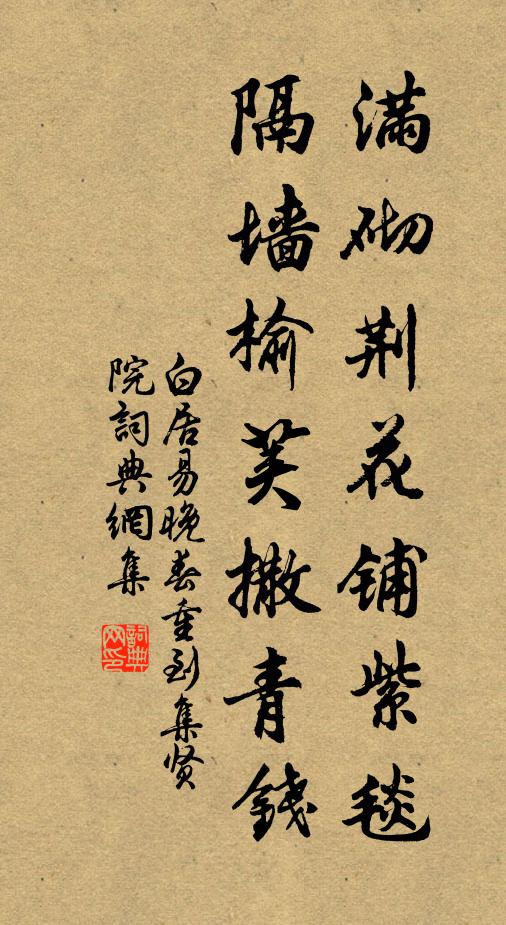 满砌荆花铺紫毯
隔墙榆荚撒青錢
白居易晚春重到集贤
院詞典網集
詞典
网印